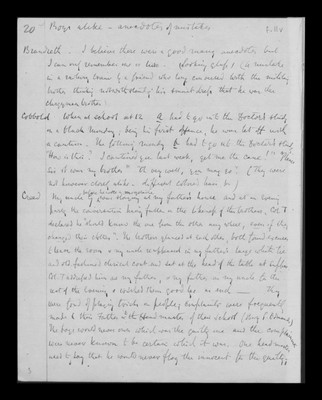 20 Boys alike — anecdotes of mistakes
Brandreth. I believe there were a good many anecdotes but
I can only remember one or two. Looking glass (a mistake
in a railway train by a friend who long conversed with the military
brother, thinking notwithstanding his dress that he was the
clergyman brother.
Cobbold When at school at He had to go into the Doctor's study
on a black Monday; being his first offence, he was let off with
a caution. The following Monday I had to go into the Doctor's study
"How is this? I cautioned you last week, yet you the same!" "Please
sir it was my brother" "Oh very well, you may go". (They were
not however closely alike: different coloured hair.)
My uncle was staying at my father's house and at an evening
party the conversation being on the likeness of the brothers, Col. T
declared he should know the one from the other any where, even if they
changed their clothes. The brothers glanced at each other, both found excuses
to leave the room & my uncle reappeared in my father's
and old fashioned clerical coat and sat at the head of the table at supper
Col. T addressed him as my father, & my father as my uncle for the
rest of the evening & wished them good bye as such — They
were fond of playing tricks on people, complaints were frequently
made to their Father & the Head master of their school (King's Edward)
The boys would never own which was the guilty one and the complainers
were never known to be certain which it was. One head master
used to say that he would never flog the innocent for the guilty,